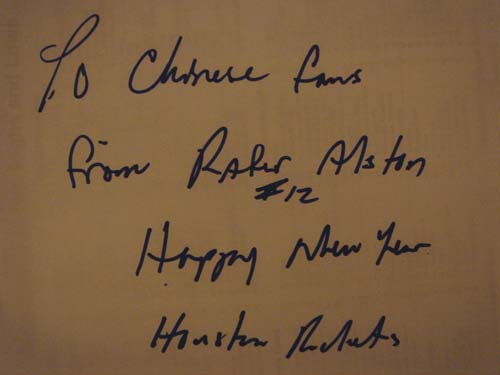 To Chinese fans
from Rafer Alston
#12
Happy New Year
Houston Rockets